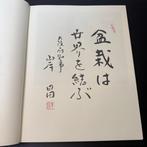 盆栽は
世界を結ぶ
大阪府知事
岸 昌